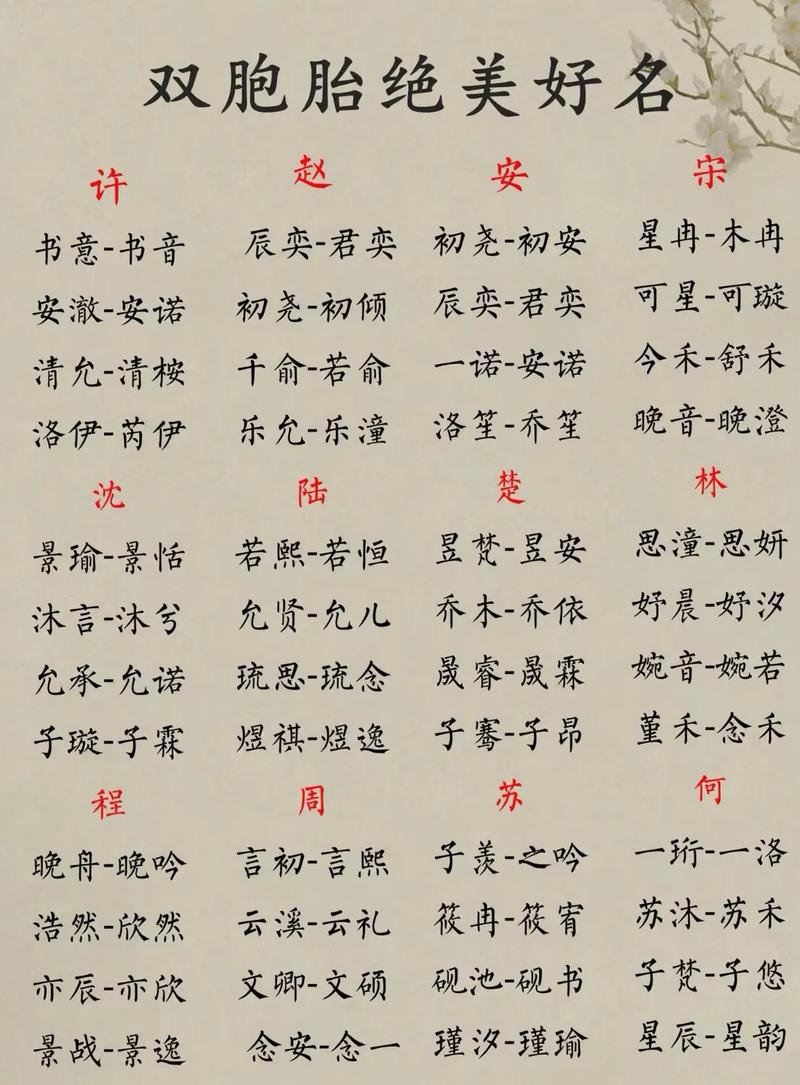 双胞胎绝美好名
许 赵 安 宋
书意-书音 辰奕-君奕 初尧-初安 星冉-木冉
安澈-安诺 初尧-初倾 辰奕-君奕 可星-可璇
清允-清桉 千俞-若俞 一诺-安诺 今禾-舒禾
洛伊-芮伊 乐允-乐潼 洛笙-乔笙 晚音-晚澄
沈 陆 楚 林
景瑜-景恬 若熙-若恒 昱梵-昱安 思潼-思妍
沐言-沐兮 允贤-允儿 乔木-乔依 妤晨-妤汐
允承-允诺 琉思-琉念 晟睿-晟霖 婉音-婉若
子璇-子霖 煜祺-煜逸 子骞-子昂 堇禾-念禾
程 周 苏 何
晚舟-晚吟 言初-言熙 子羡-之吟 一珩-一洛
浩然-欣然 云溪-云礼 筱冉-筱宥 苏沐-苏禾
亦辰-亦欣 文卿-文硕 砚池-砚书 子梵-子悠
景战-景逸 念安-念一 瑾汐-瑾瑜 星辰-星韵